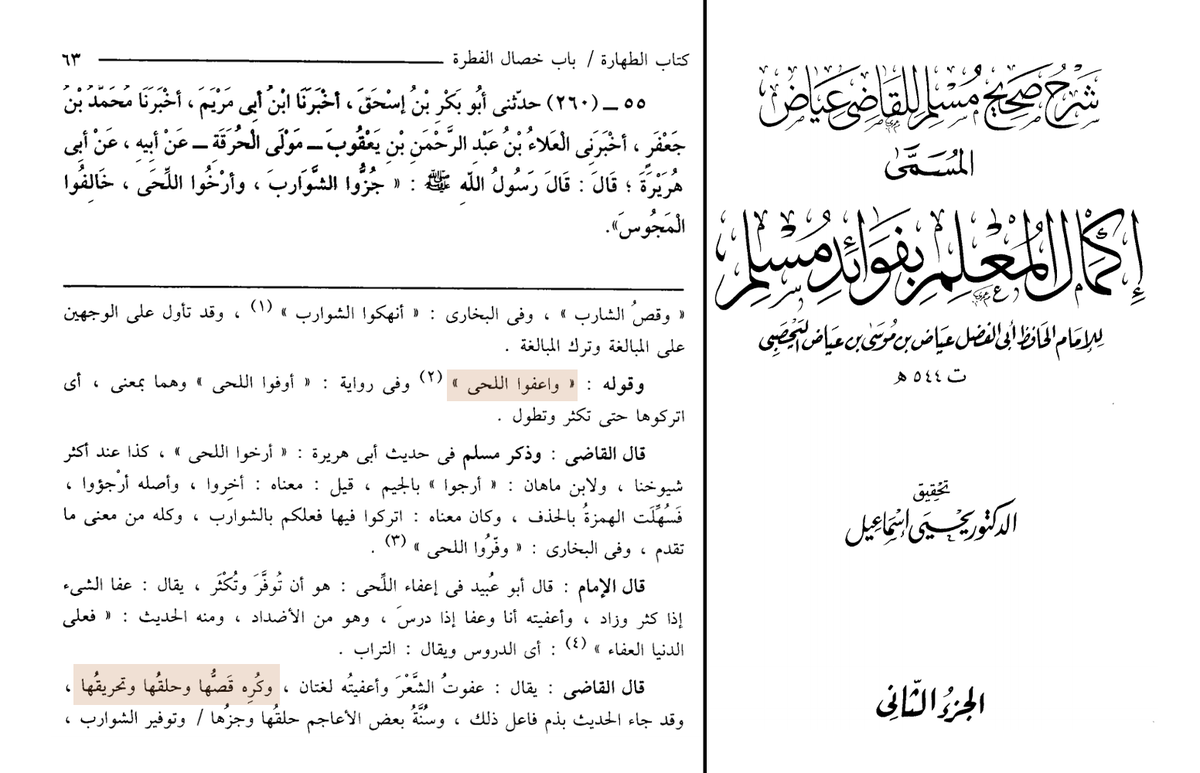 شرح صحيح مسلم للقاضى عياض
المسمى
إكمال المعلم بفوائد مسلم
للإمام الحافظ أبى الفضل عياض بن موسى بن عياض اليحصبى
ت ٥٤٤ هـ
تحقيق
الدكتور يحيى إسماعيل
الجزء الثانى
كتاب الطهارة / باب خصال الفطرة ٦٣
٥٥ ــ (٢٦٠) حدّثنى أبُو بَكْرِ بْنُ إسْحقَ ، أخْبَرَنَا ابْنُ أبِى مَرْيَمَ ، أخْبَرَنَا مُحَمَّدُ بْنُ
جَعْفَرٍ ، أخْبَرَنِى الْعَلاءُ بْنُ عَبْدِ الرَّحْمَنِ بْنِ يَعْقُوبَ ــ مَوْلَى الْحُرَقَةِ ــ عَنْ أبِيهِ ، عَنْ أبِى
هُرَيْرَةَ ؛ قَالَ : قَالَ رَسُولُ اللّهِ ﷺ : « جُزُّوا الشَّوَارِبَ ، وأرْخُوا اللِّحَى ، خَالِفُوا
الْمَجُوسَ».
« وقصُ الشارب » ، وفى البخارى : « أنهكوا الشوارب » (١) ، وقد تأول على الوجهين
على المبالغة وترك المبالغة .
وقوله : « واعفوا اللحى » (٢) وفى رواية : « أوفوا اللحى » وهما بمعنى ، أى
اتركوها حتى تكثر وتطول .
قال القاضى : وذكر مسلم فى حديث أبى هريرة : « أرخوا اللحى » ، كذا عند أكثر
شيوخنا ، ولابن ماهان : « أرجوا » بالجيم ، قيل : معناه : أخِروا ، وأصله أرْجؤوا ،
فَسُهِّلَت الهمزةُ بالحذف ، وكان معناه : اتركوا فيها فعلكم بالشوارب ، وكله من معنى ما
تقدم ، وفى البخارى : « وفّرُوا اللحى » (٣) .
قال الإمام : قال أبو عُبيد فى إعفاء اللِّحى : هو أن تُوفَّرَ وتُكْثَر ، يقال : عفا الشىء
إذا كثر وزاد ، وأعفيته أنا وعفا إذا درسَ ، وهو من الأضداد ، ومنه الحديث : « فعلى
الدنيا العفاء » (٤) : أى الدروس ويقال : التراب .
قال القاضى : يقال : عفوتُ الشَّعْرَ وأعفيتُه لغتان ، وكُرِه قَصُّها وحلقُها وتحريقُها ،
وقد جاء الحديث بذم فاعل ذلك ، وسُنَّةُ بعض الأعاجم حلقُها وجزُها / وتوفير الشوارب ،